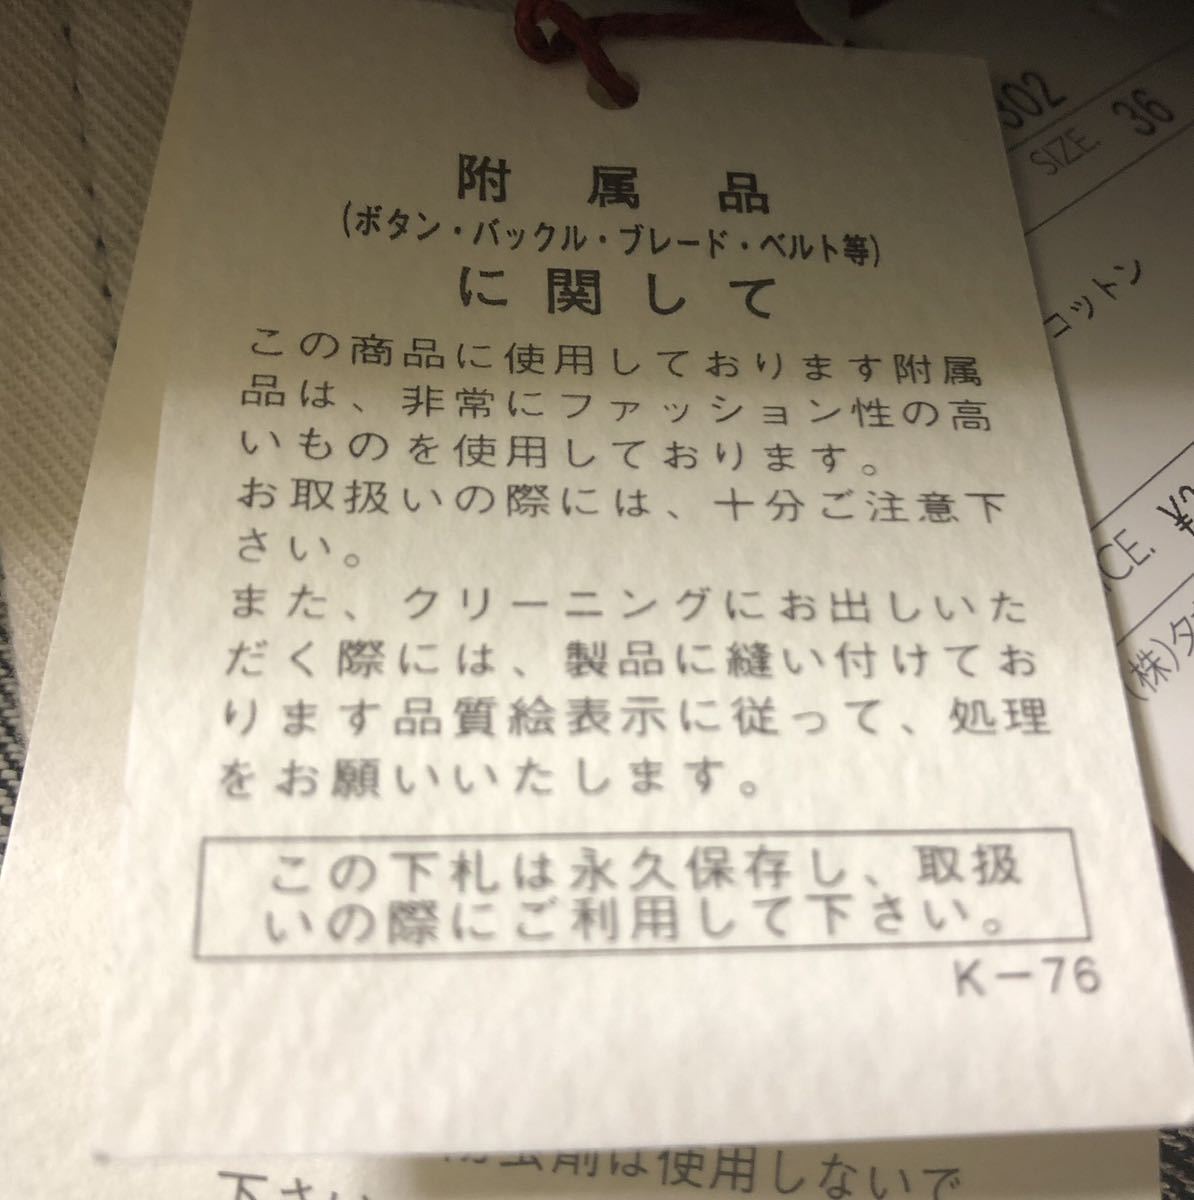 附属品
(ボタン・バックル・ブレード・ベルト等)
に関して
この商品に使用しております附属
品は、非常にファッション性の高
いものを使用しております。
お取扱いの際には、十分ご注意下
さい。
また、クリーニングにお出しいた
だく際には、製品に縫い付けてお
ります品質絵表示に従って、処理
をお願いいたします。
この下札は永久保存し、取扱
いの際にご利用して下さい。
K-76
302
SIZE. 36
コットン
CE. ¥
(株)タ
剤は使用しないで
下さい